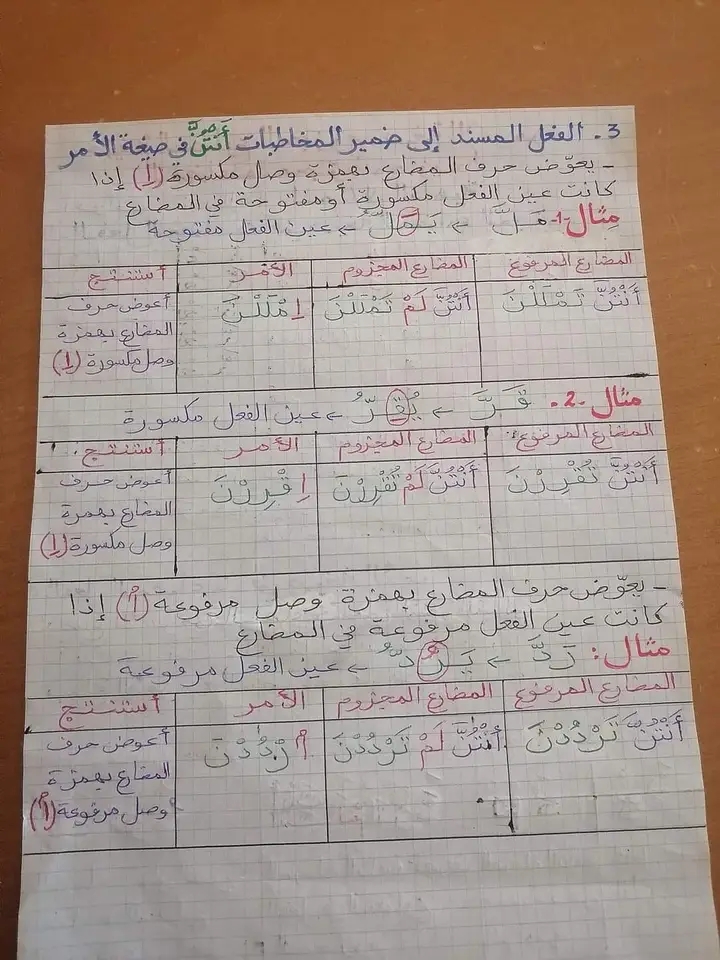 3. الفعل المسند إلى ضمير المخاطبات أَنْتُنَّ في صيغة الأمر
- يعوّض حرف المضارع بهمزة وصل مكسورة (اِ) إذا
كانت عين الفعل مكسورة أو مفتوحة في المضارع
مثال-1- مَلَّ ← يَمَلُّ ← عين الفعل مفتوحة
المضارع المرفوع المضارع المجزوم الأمر أستنتج
أَنْتُنَّ تَمْلَلْنَ أَنْتُنَّ لَمْ تَمْلَلْنَ اِمْلَلْنَ أعوض حرف
المضارع بهمزة
وصل مكسورة (اِ)
مثال -2- قَرَّ ← يُقِرُّ ← عين الفعل مكسورة
المضارع المرفوع: المضارع المجزوم الأمر أستنتج:
أَنْتُنَّ تُقْرِرْنَ أَنْتُنَّ لَمْ تُقْرِرْنَ اِقْرِرْنَ أعوض حرف
المضارع بهمزة
وصل مكسورة (اِ)
- يعوّض حرف المضارع بهمزة وصل مرفوعة (اُ) إذا
كانت عين الفعل مرفوعة في المضارع
مثال: رَدَّ ← يَرُدُّ ← عين الفعل مرفوعة
المضارع المرفوع المضارع المجزوم الأمر أستنتج
أَنْتُنَّ تَرْدُدْنَ أَنْتُنَّ لَمْ تَرْدُدْنَ اُرْدُدْنَ أعوض حرف
المضارع بهمزة
وصل مرفوعة (اُ)